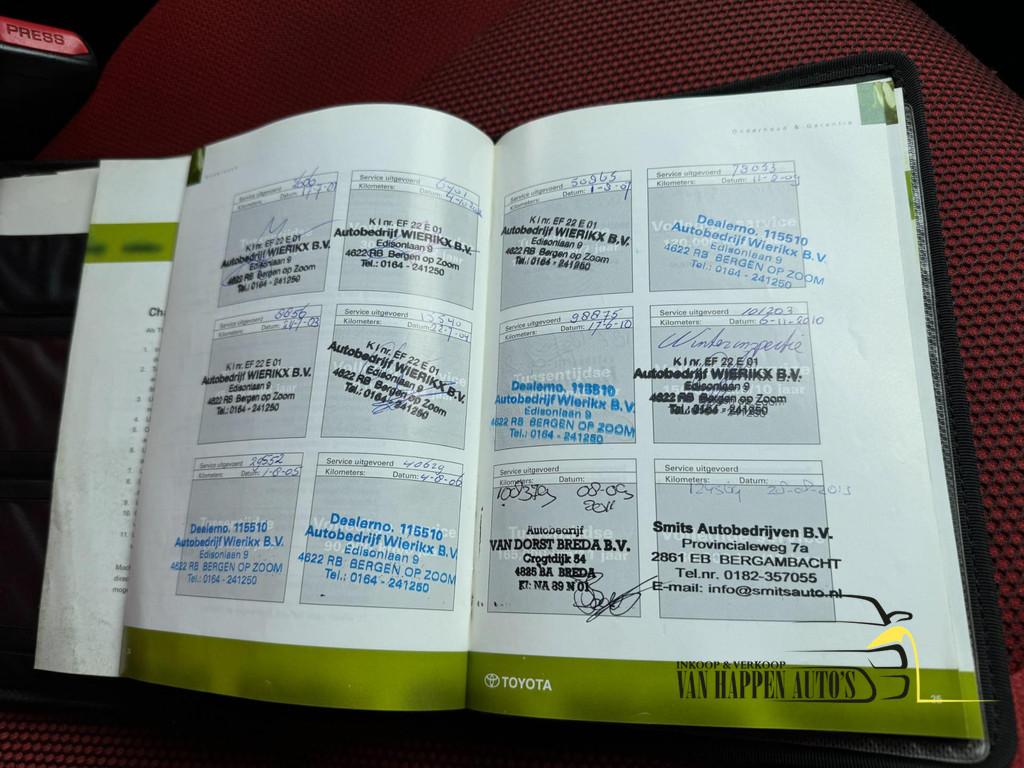 PRESS
Onderhoud & Garantie
Service uitgevoerd
Kilometers: Datum:
K I nr. EF 22 E 01
Autobedrijf WIERIKX B.V.
Edisonlaan 9
4622 RB Bergen op Zoom
Tel.: 0164 - 241250
Service uitgevoerd
Kilometers: Datum:
K I nr. EF 22 E 01
Autobedrijf WIERIKX B.V.
Edisonlaan 9
4622 RB Bergen op Zoom
Tel.: 0164 - 241250
Service uitgevoerd
Kilometers: Datum:
K I nr. EF 22 E 01
Autobedrijf WIERIKX B.V.
Edisonlaan 9
4622 RB Bergen op Zoom
Tel.: 0164 - 241250
Service uitgevoerd 13340
Kilometers: Datum:
K I nr. EF 22 E 01
Autobedrijf WIERIKX B.V.
Edisonlaan 9
4622 RB Bergen op Zoom
Tel.: 0164 - 241250
Service uitgevoerd 29552
Kilometers: Datum: 1-8-05
Dealerno. 115510
Autobedrijf Wierikx B.V.
Edisonlaan 9
4622 RB BERGEN OP ZOOM
Tel.: 0164 - 241250
Service uitgevoerd 40629
Kilometers: Datum: 4-8-06
Dealerno. 115510
Autobedrijf Wierikx B.V.
Edisonlaan 9
4622 RB BERGEN OP ZOOM
Tel.: 0164 - 241250
Service uitgevoerd
Kilometers: Datum:
K I nr. EF 22 E 01
Autobedrijf WIERIKX B.V.
Edisonlaan 9
4622 RB Bergen op Zoom
Tel.: 0164 - 241250
Service uitgevoerd
Kilometers: Datum: 11-2-09
Dealerno. 115510
Autobedrijf Wierikx B.V.
Edisonlaan 9
4622 RB BERGEN OP ZOOM
Tel.: 0164 - 241250
Service uitgevoerd 98875
Kilometers: Datum: 17-6-10
Tussentijdse
Dealerno. 115510
Autobedrijf Wierikx B.V.
Edisonlaan 9
4622 RB BERGEN OP ZOOM
Tel.: 0164 - 241250
Service uitgevoerd 101203
Kilometers: Datum: 6-11-2010
Winterinspectie
K I nr. EF 22 E 01
Autobedrijf WIERIKX B.V.
Edisonlaan 9
4622 RB Bergen op Zoom
Tel.: 0164 - 241250
Service uitgevoerd
Kilometers: Datum:
08-09
2011
Autobedrijf
VAN DORST BREDA B.V.
Crogtdijk 54
4825 BA BREDA
KI: NA 89 N 01
Service uitgevoerd
Kilometers: Datum:
Smits Autobedrijven B.V.
Provincialeweg 7a
2861 EB BERGAMBACHT
Tel.nr. 0182-357055
E-mail: info@smitsauto.nl
TOYOTA
INKOOP & VERKOOP
VAN HAPPEN AUTO'S